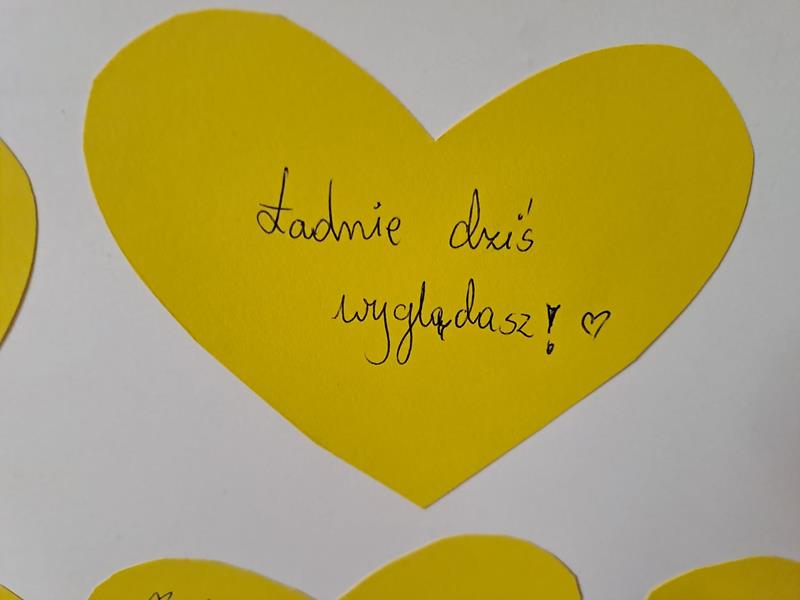 Ładnie dziś
wyglądasz! ♡